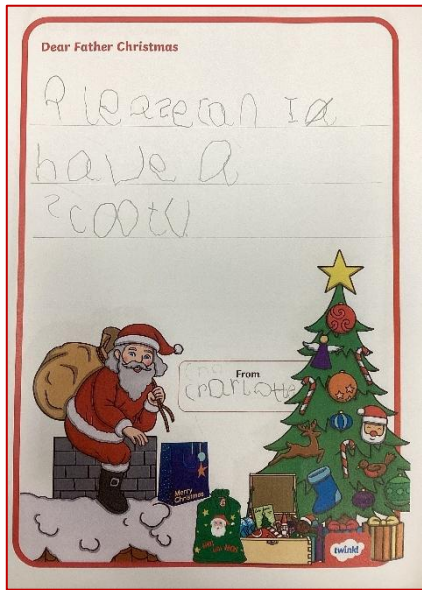 Dear Father Christmas
Pleasecan I a
have a
scootu
From
CharLotte
Merry
Christmas
twinkl